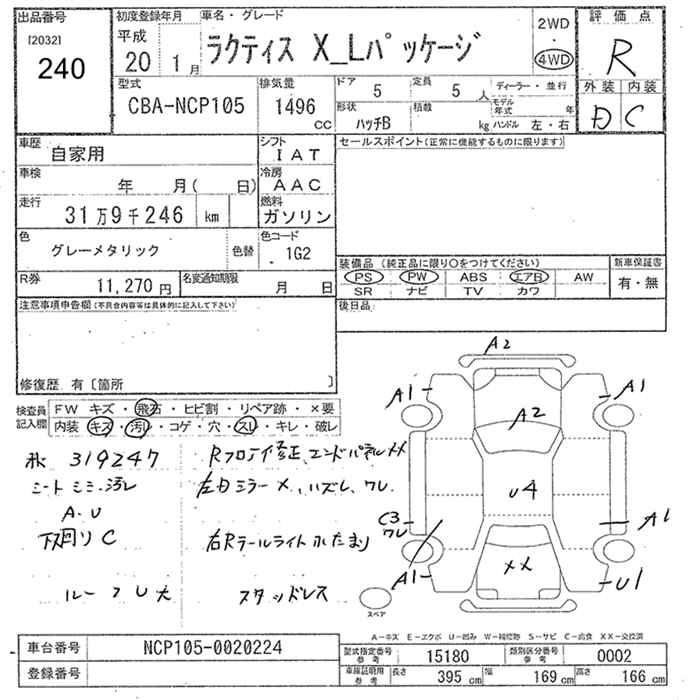 出品番号
[2032]
240
初度登録年月
平成
20 1月
車名・グレード
ラクティス X_Lパッケージ
2WD
・
4WD
評価点
R
外装 内装
D C
型式
CBA-NCP105
排気量
1496
cc
ドア
5
定員
5 人
ディーラー・並行
形状
ハッチB
積載
kg
モデル年式 年
ハンドル 左・右
車歴
自家用
シフト
IAT
セールスポイント(正常に機能するものに限ります)
車検
年 月( 日)
冷房
AAC
走行
31万9千246 km
燃料
ガソリン
色
グレーメタリック
色替
色コード
1G2
装備品(純正品に限り○をつけてください)
PS PW ABS エアB AW
SR ナビ TV カワ
新車保証書
有・無
R券
11,270円
名変通知期限
月 日
後日品:
注意事項申告欄(不具合内容等は具体的に記入して下さい)
修復歴 有〔箇所 〕
検査員記入欄
FW キズ・飛石・ヒビ割・リペア跡・×要
内装 キズ・汚れ・コゲ・穴・スレ・キレ・破レ
319247
シート シミ・汚レ
A.U
下廻り C
ルーフ U 大
Rフロア修正、エンドパネルXX
左ドミラーX、ハズレ、ワレ
右Rテールライト水たまり
スタッドレス
A2
A1
A1
A2
U4
C3
ワレ
A1
A1
XX
U1
スペア
A-キズ E-エクボ U-凹み W-補修跡 S-サビ C-腐食 XX-交換済
車台番号
NCP105-0020224
登録番号
型式指定番号
参考
15180
類別区分番号
参考
0002
車庫証明用
参考
長さ
395 cm
幅
169 cm
高さ
166 cm